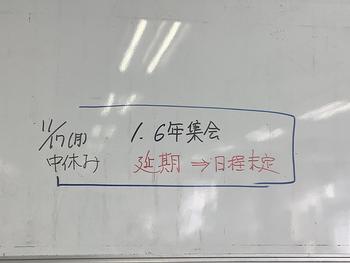 11/17(月) 1.6年集会
中休み 延期⇒日程未定